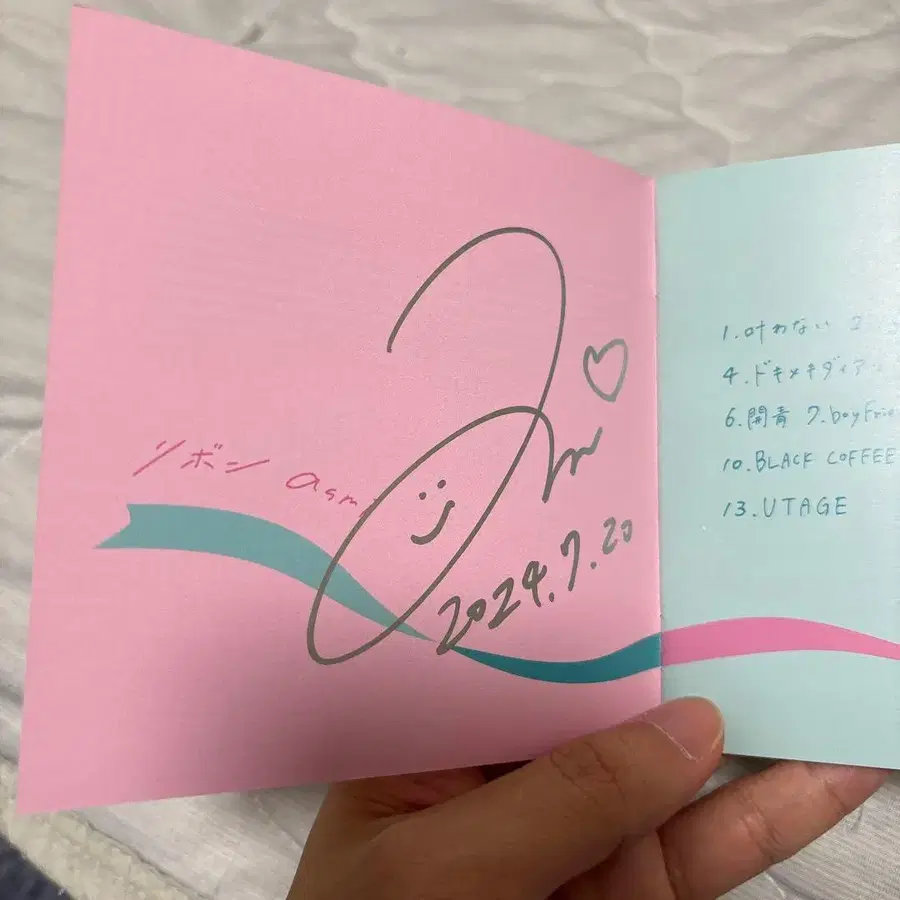 リボン asmi
2024.7.20
1.叶わない 2
4.ドキメキダイア
6.開青 7.boyfrie
10.BLACK COFFEE
13.UTAGE